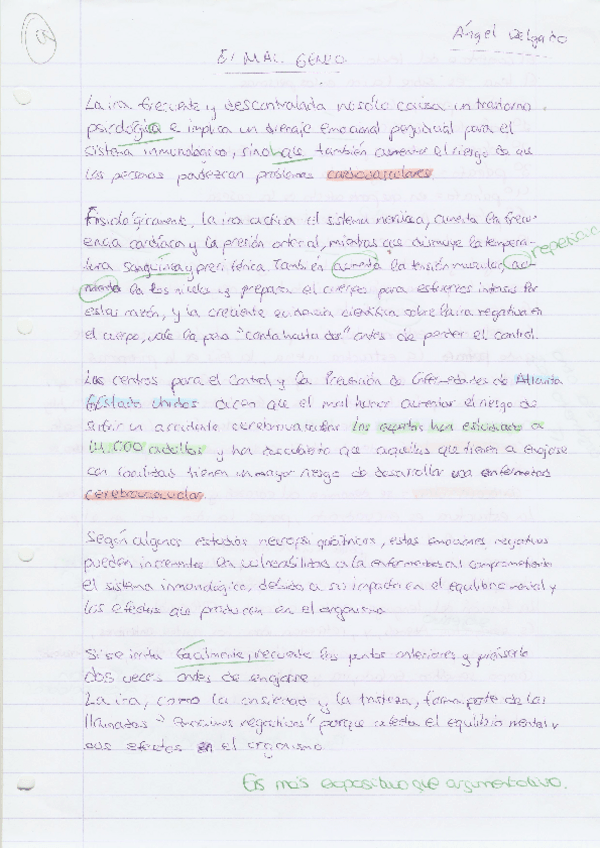 Ángel Delgado
El MAL GENIO
La ira frecuente y descontrolada no sólo causa un trastorno
psicológica e implica un drenaje emocional perjudicial para el
sistema inmunológico, sino que también aumentar el riesgo de que
las personas padezcan problemas cardiovasculares
Fisiológicamente, la ira activa el sistema nervioso, aumenta la frecu-
encia cardíaca y la presión arterial, mientras que disminuye la tempera-
tura sanguínea y periférica. También aumenta la tensión muscular, au-
repetición
menta y prepara el cuerpo para esfuerzos intensos Por
estas razón, y la creciente evidencia científica sobre la ira negativa en
el cuerpo, vale la pena "conta hasta dos" antes de perder el control.
Los centros para el Control y la Prevención de Enfermedades de Atlanta
Estado Unidos dicen que el mal humor aumentar el riesgo de
sufrir un accidente cerebrovascular los expertos han estudiado a
14.000 adultos y han descubierto que aquellos que tienen a enojarse
con facilidad tienen un mayor riesgo de desarrollar una enfermedad
cerebrovascular.
Según algunos estudios estas emociones negativas
pueden incrementar la vulnerabilidad a la enfermedad al comprometiendo
el sistema inmunológico, debido a su impacto en el equilibrio mental y
los efectos que producen en el organismo
Si se irrita facilmente, recuerde los puntos anteriores y piénselo
dos veces antes de enojarse
La ira, como la ansiedad y la tristeza, forma parte de las
llamadas "Emociones negativas" porque afecta el equilibrio mental y
sus efectos en el organismo
Es más expositivo que argumentativo.